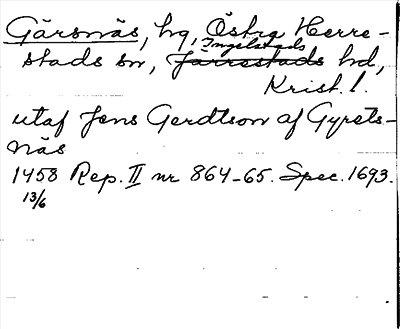 Gärsnäs, hg, Östra Herre-
Ingelstads
stads sn, Järrestads hd,
Krist. l.
utaf Jens Gerdtson af Gyrets-
näs
1458 Rep. II nr 864-65. Spec. 1693.
13/6